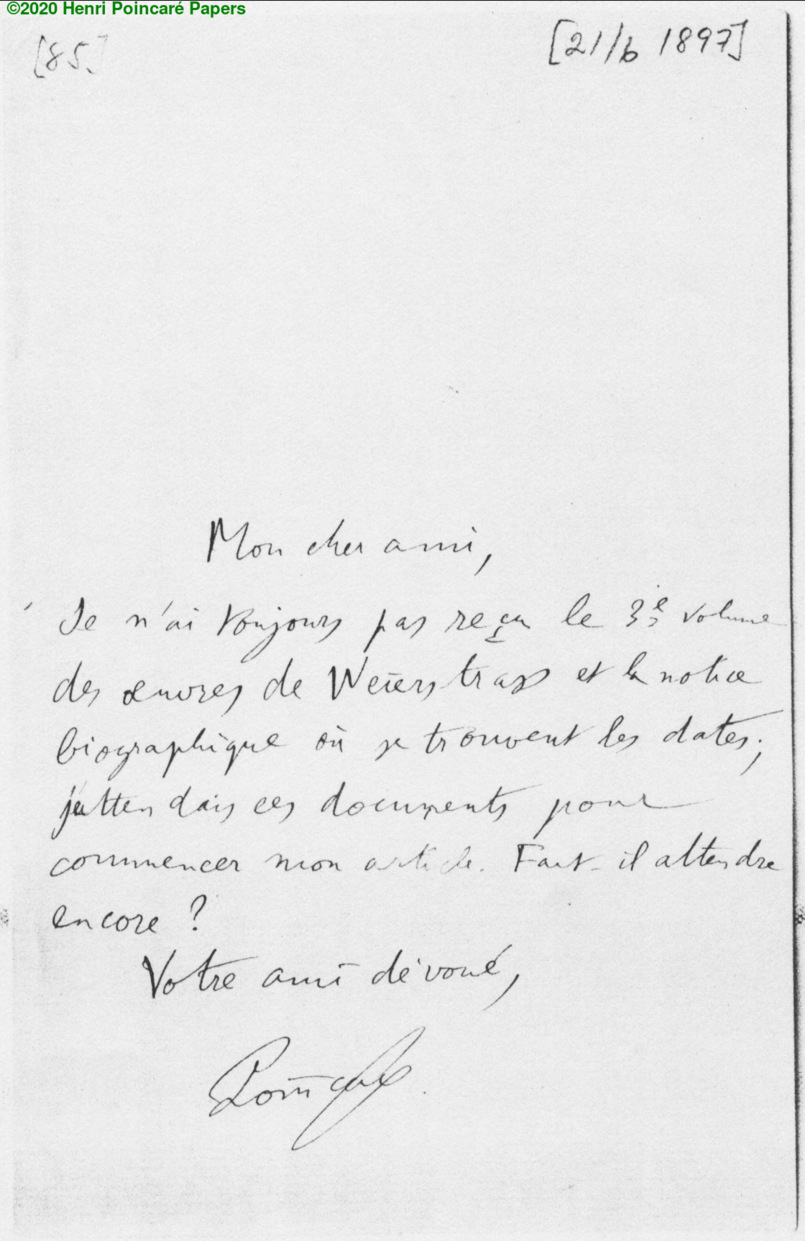 ©2020 Henri Poincaré Papers
[85]
[21/6 1897]
Mon cher ami,
Je n'ai toujours pas reçu le 3e volume
des œuvres de Weierstrass et la notice
biographique où se trouvent les dates;
j'attendais ces documents pour
commencer mon article. Faut-il attendre
encore ?
Votre ami dévoué,
Poincaré